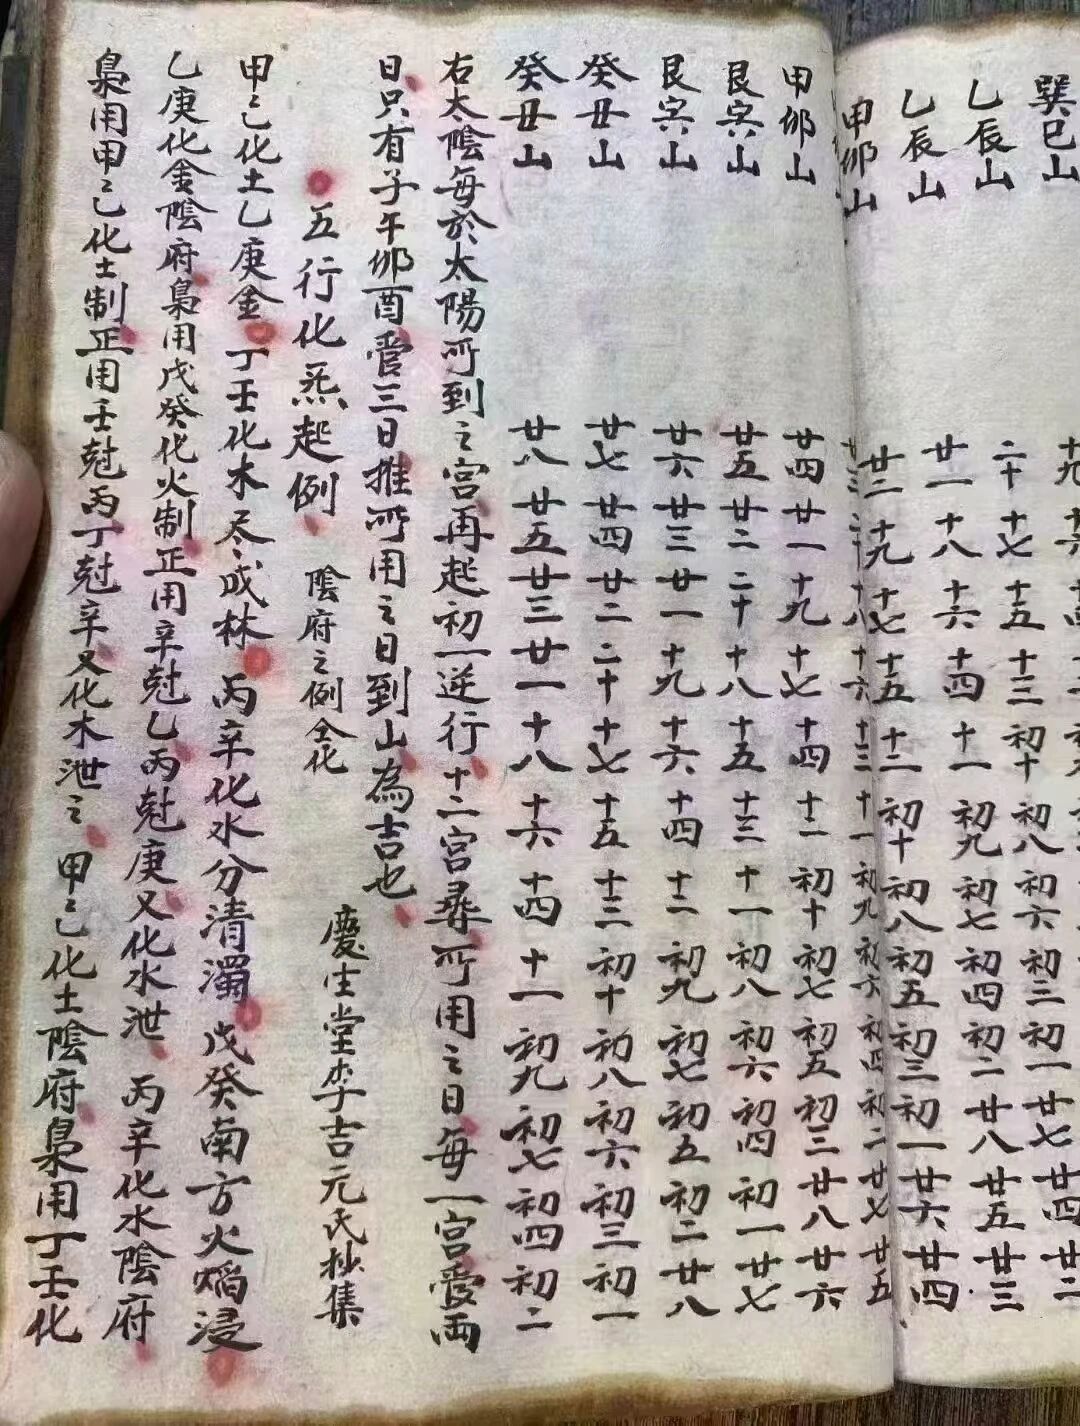 巽巳山 十九 十六
乙辰山 二十 十七 十五 十三 初十 初八 初六 初三 初一 廿七 廿四 廿二
乙辰山 廿一 十八 十六 十四 十一 初九 初七 初四 初二 廿八 廿五 廿三
甲卯山 廿二 十九 十七 十五 十二 初十 初八 初五 初三 初一 廿六 廿四
廿三 二十 十八 十六 十三 十一 初九 初六 初四 初二 廿七 廿五
甲卯山 廿四 廿一 十九 十七 十四 十二 初十 初七 初五 初三 廿八 廿六
艮寅山 廿五 廿二 二十 十八 十五 十三 十一 初八 初六 初四 初一 廿七
艮寅山 廿六 廿三 廿一 十九 十六 十四 十二 初九 初七 初五 初二 廿八
癸丑山 廿七 廿四 廿二 二十 十七 十五 十三 初十 初八 初六 初三 初一
癸丑山 廿八 廿五 廿三 廿一 十八 十六 十四 十一 初九 初七 初四 初二
右太陰每於太陽所到之宮再起初一逆行十二宮尋所用之日每一宮管兩
日只有子午卯酉管三日推所用之日到山為吉也
慶生堂李吉元氏抄集
五行化炁起例 陰府之例仝化
甲己化土乙庚金 丁壬化木尽成林 丙辛化水分清濁 戊癸南方火焰浸
乙庚化金陰府梟用戊癸化火制正用辛尅乙丙尅庚又化水泄 丙辛化水陰府
梟用甲己化土制正用壬尅丙丁尅辛又化木泄之 甲己化土陰府梟用丁壬化